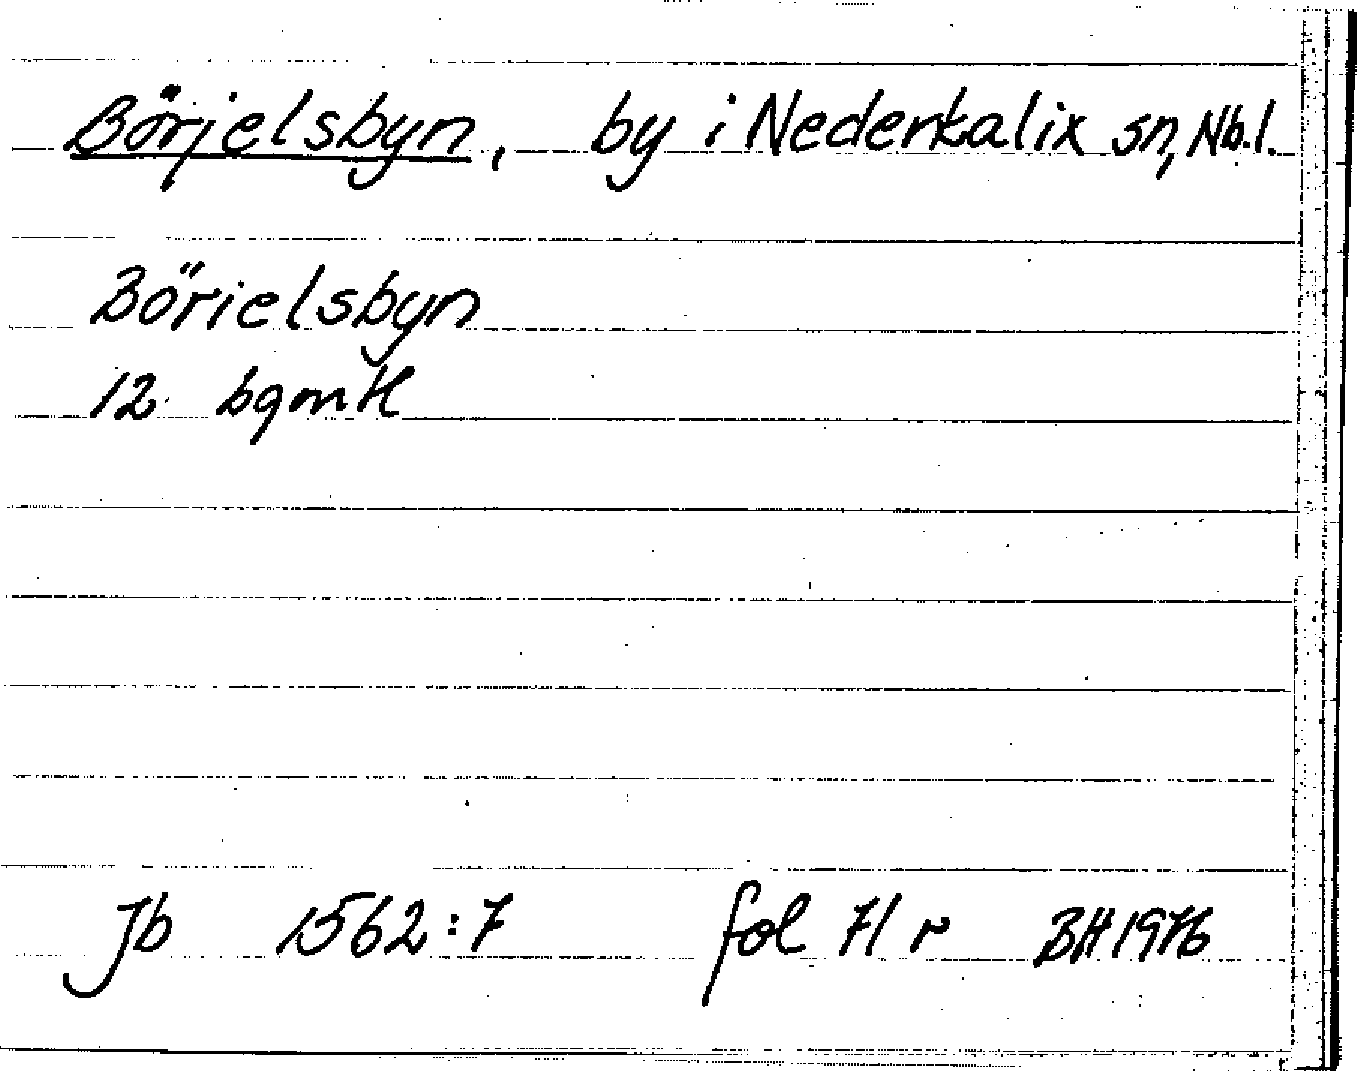 Börjelsbyn, by i Nederkalix sn, Nb.l.
Börielsbyn
12 bgmtl
Jb 1562:7 fol 71 r BH 1976